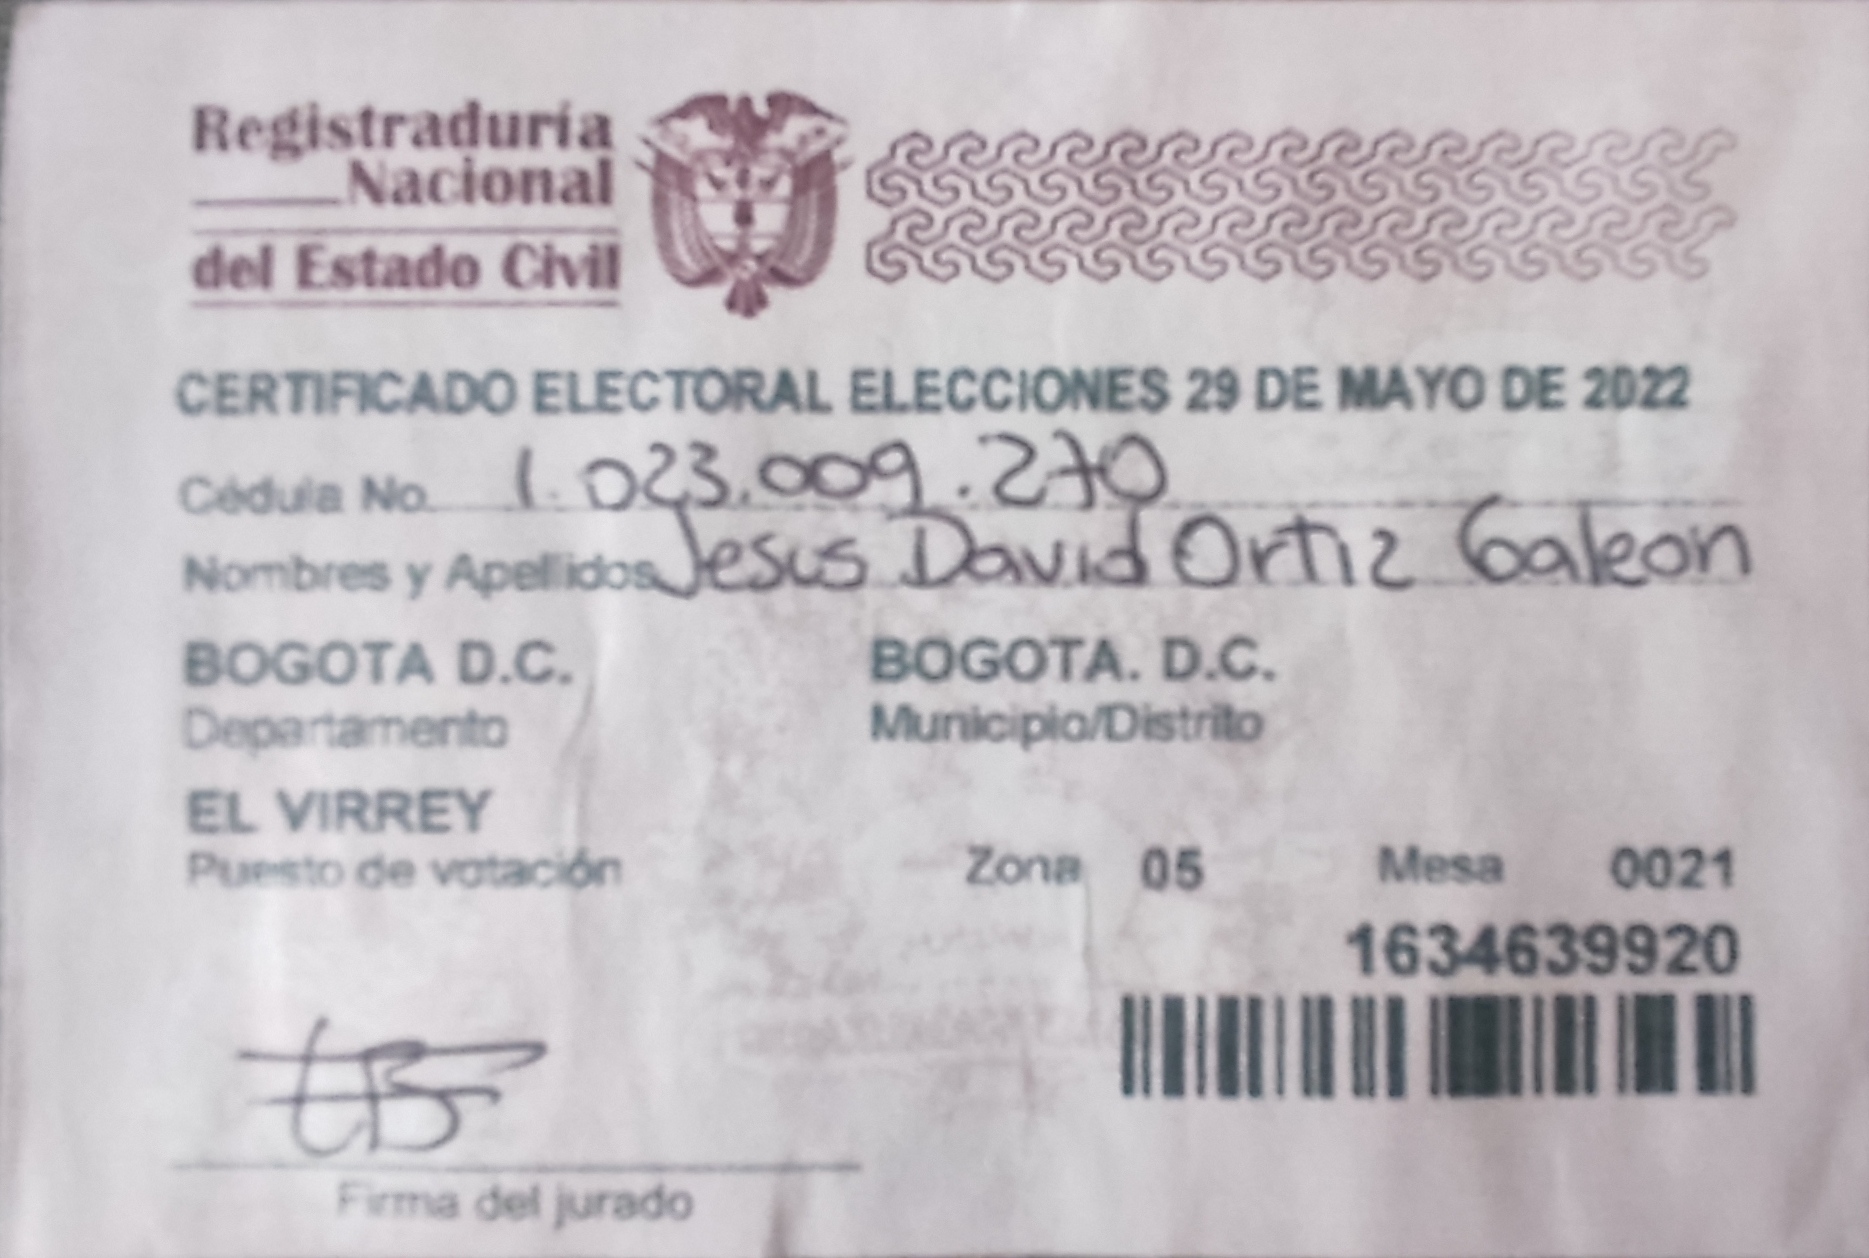 Registraduría
Nacional
del Estado Civil
CERTIFICADO ELECTORAL ELECCIONES 29 DE MAYO DE 2022
Cédula No. 1.023.009.270
Nombres y Apellidos Jesus David Ortiz Galeon
BOGOTA D.C. BOGOTA. D.C.
Departamento Municipio/Distrito
EL VIRREY
Puesto de votación Zona 05 Mesa 0021
1634639920
Firma del jurado